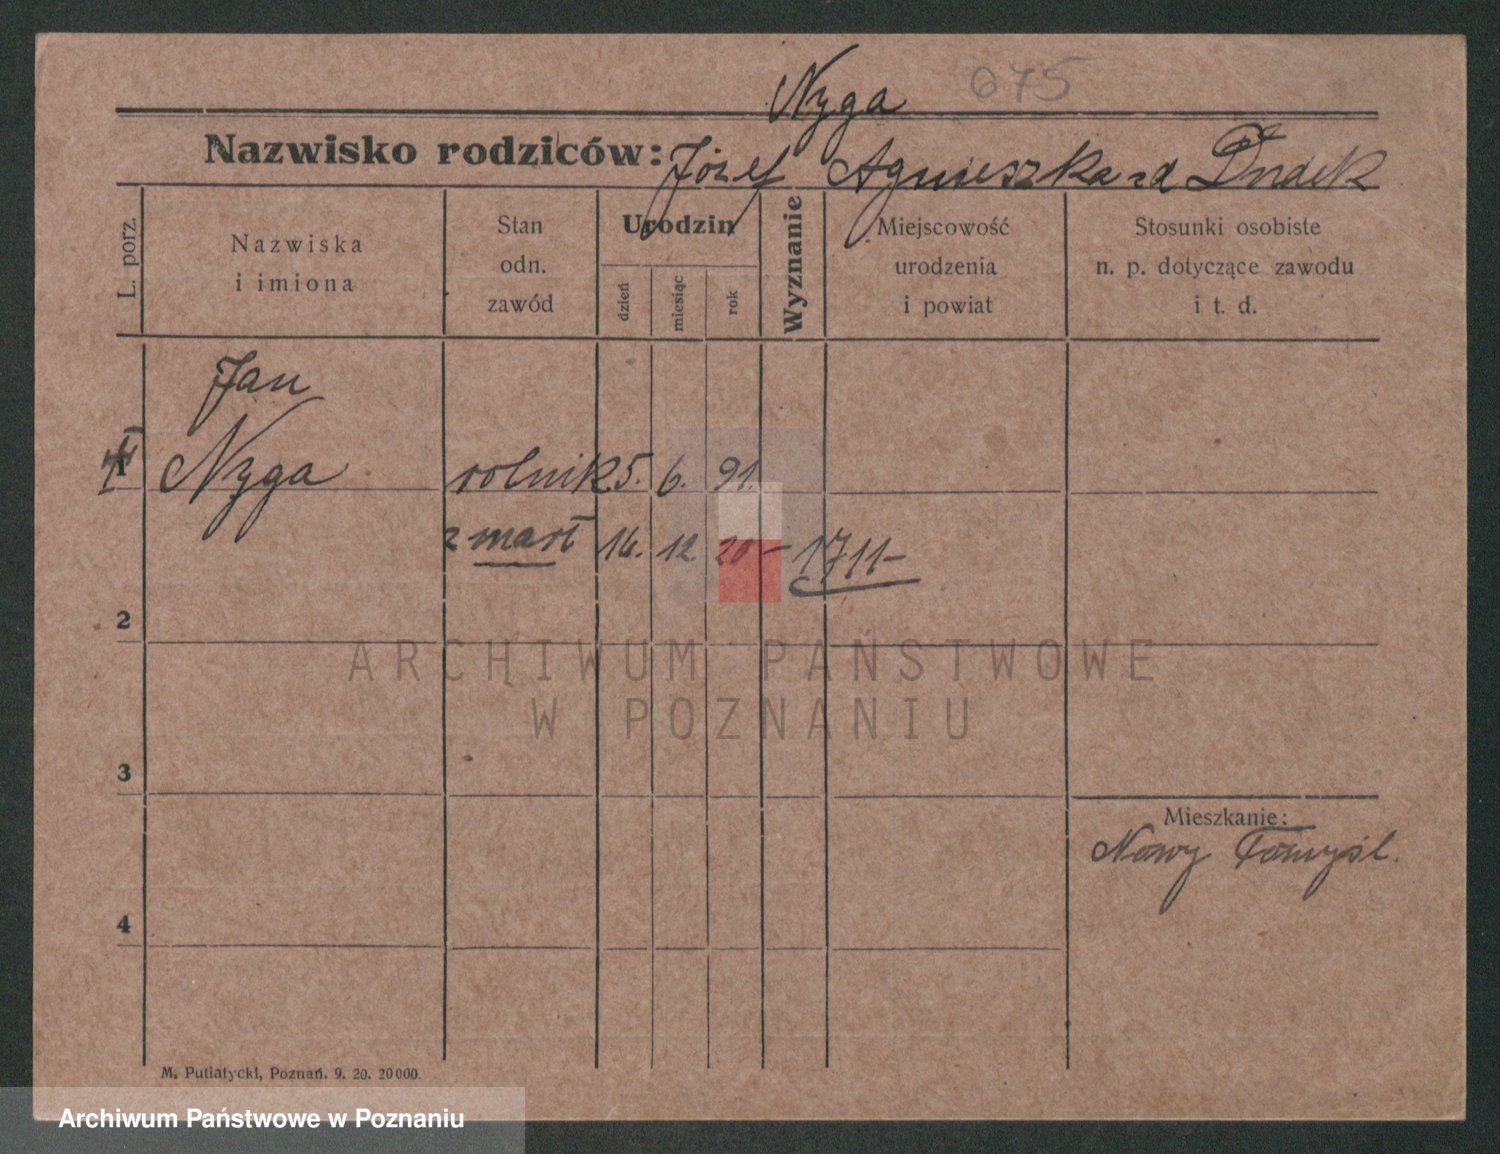 Nyga 675
Nazwisko rodziców: Józef Agnieszka zd Dudek
L. porz.
Nazwiska
i imiona
Stan
odn.
zawód
Urodzin
dzień
miesiąc
rok
Wyznanie
Miejscowość
urodzenia
i powiat
Stosunki osobiste
n. p. dotyczące zawodu
i t. d.
Jan
1 Nyga rolnik 5. 6. 91.
zmarł 16. 12. 20 – 1711 –
2
ARCHIWUM PAŃSTWOWE
W POZNANIU
3
Mieszkanie:
Nowy Tomyśl.
4
M. Putiatycki, Poznań. 9. 20. 20000.
Archiwum Państwowe w Poznaniu